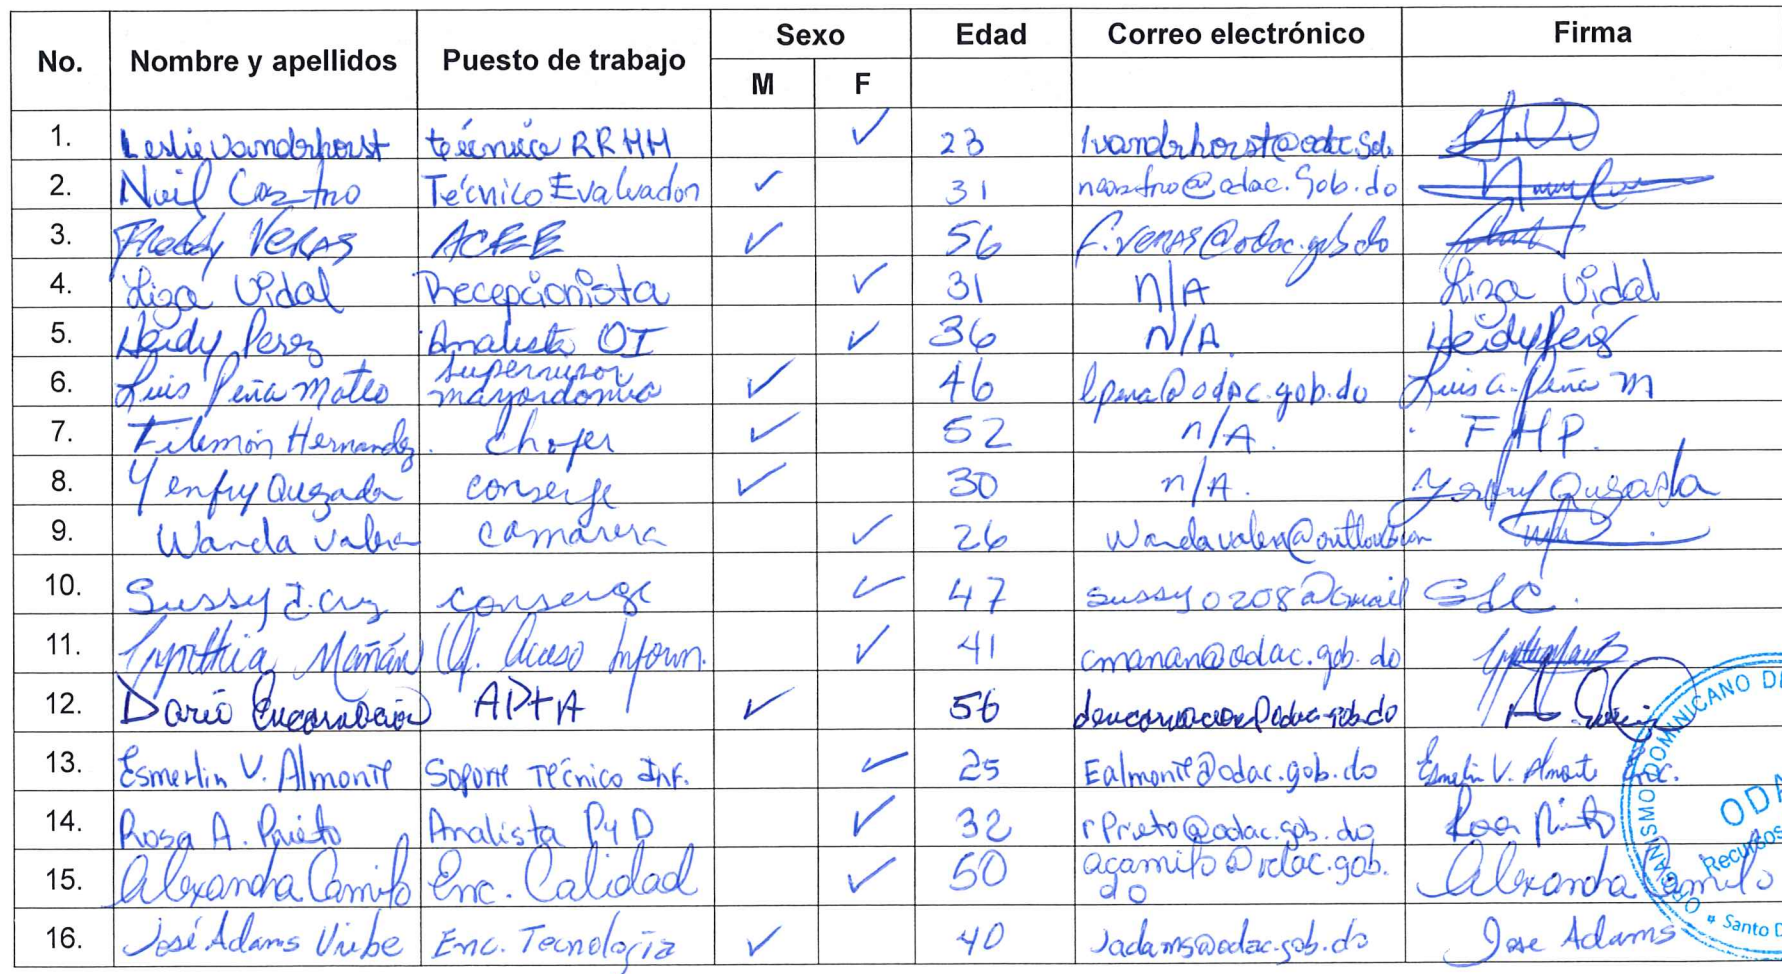 No. Nombre y apellidos Puesto de trabajo Sexo Edad Correo electrónico Firma
M F
1. Leslie Vanderhorst técnico RRHH ✓ 23 lvanderhorst@odac.gob.
2. Neil Castro Técnico Evaluador ✓ 31 ncastro@odac.gob.do
3. Freddy Veras ACREE ✓ 56 f.veras@odac.gob.do
4. Liza Vidal Recepcionista ✓ 31 n/A Liza Vidal
5. Heidy Perez Analista OI ✓ 36 N/A Heidy Perez
6. Luis Peña Mateo supervisor mayordomia ✓ 46 lpena@odac.gob.do Luis a. Peña M
7. Filemón Hernandez. Chofer ✓ 52 n/A. F H P.
8. Yenfry Quezada conserje ✓ 30 n/A. Yenfry Quezada
9. Wanda Valera camarera ✓ 26 Wandavalera@outlook.com
10. Sussy J. Cruz conserge ✓ 47 sussy0208@Gmail SJC.
11. Cynthia Mañán Of. Acceso Inform. ✓ 41 cmanan@odac.gob.do
12. Dario Encarnación ADTA ✓ 56 dencarnacion@odac.gob.do
13. Esmerlin V. Almonte Soporte Técnico Inf. ✓ 25 Ealmonte@odac.gob.do Esmerlin V. Almonte
14. Rosa A. Prieto Analista PyD ✓ 32 rprieto@odac.gob.do Rosa Prieto
15. Alexandra Camilo Enc. Calidad ✓ 50 acamilo@odac.gob.do Alexandra Camilo
16. José Adams Uribe Enc. Tecnología ✓ 40 Jadams@odac.gob.do Jose Adams
ORGANISMO DOMINICANO DE
ODA
Recursos
Santo D